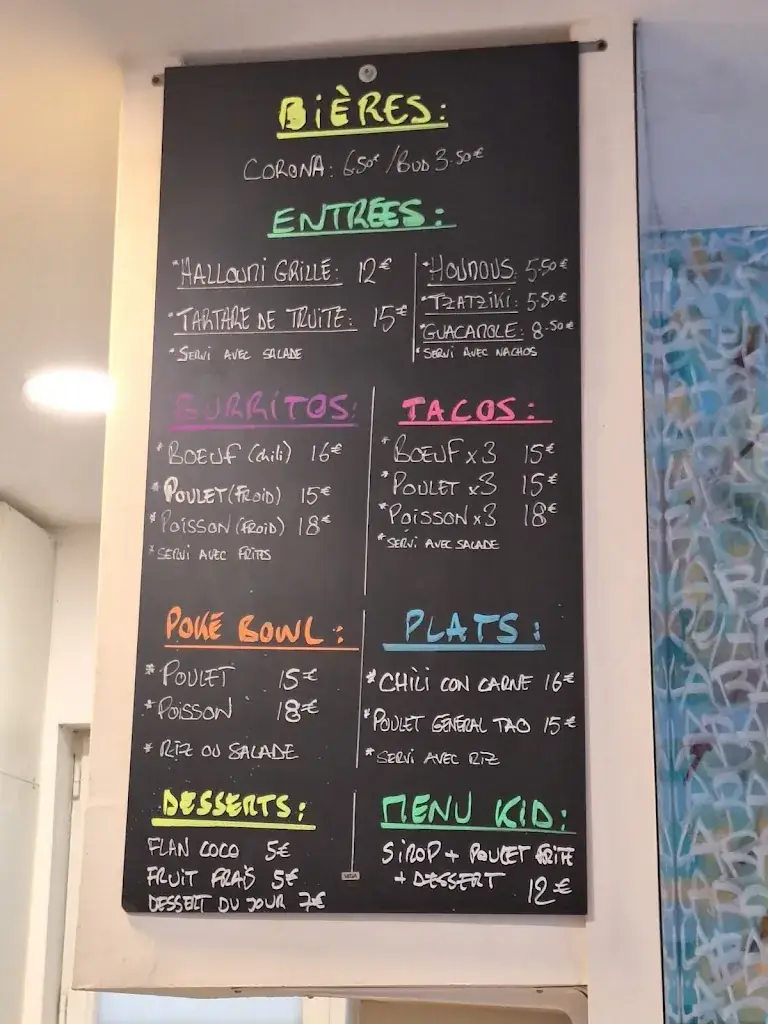 BIÈRES:
CORONA: 6.50€ / BUD 3.50€
ENTREES:
*HALLOUMI GRILLÉ: 12€
*TARTARE DE TRUITE: 15€
*SERVI AVEC SALADE
*HOUMOUS: 5.50€
*TZATZIKI: 5.50€
*GUACAMOLE: 8.50€
*SERVI AVEC NACHOS
BURRITOS:
*BOEUF (chili) 16€
*POULET (FROID) 15€
*POISSON (FROID) 18€
*SERVI AVEC FRITES
TACOS:
*BOEUF x3 15€
*POULET x3 15€
*POISSON x3 18€
*SERVI AVEC SALADE
POKÉ BOWL:
*POULET 15€
*POISSON 18€
*RIZ OU SALADE
PLATS:
*CHILI CON CARNE 16€
*POULET GÉNÉRAL TAO 15€
*SERVI AVEC RIZ
DESSERTS:
FLAN COCO 5€
FRUIT FRAIS 5€
DESSERT DU JOUR 7€
MENU KID:
SIROP + POULET FRITE
+ DESSERT 12€